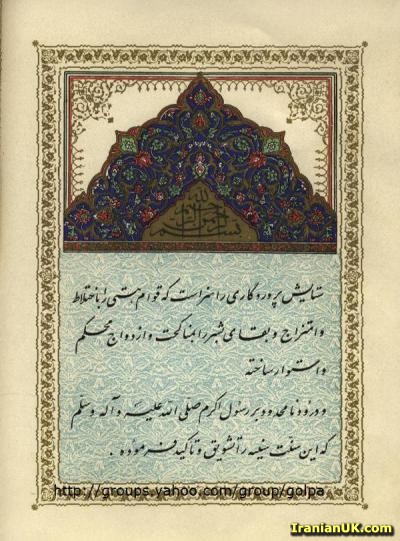 بسم الله الرحمن الرحیم
ستایش پروردگاری را سزاست که قوام هستی را باختلاط
و امتزاج و بقای بشر را بمناکحت و ازدواج محکم
و استوار ساخته
و درود نامحدود بر رسول اکرم صلی الله علیه و آله و سلم
که این سنت سنیه را تشویق و تاکید فرموده .
http://groups.yahoo.com/group/golpa
IranianUK.com